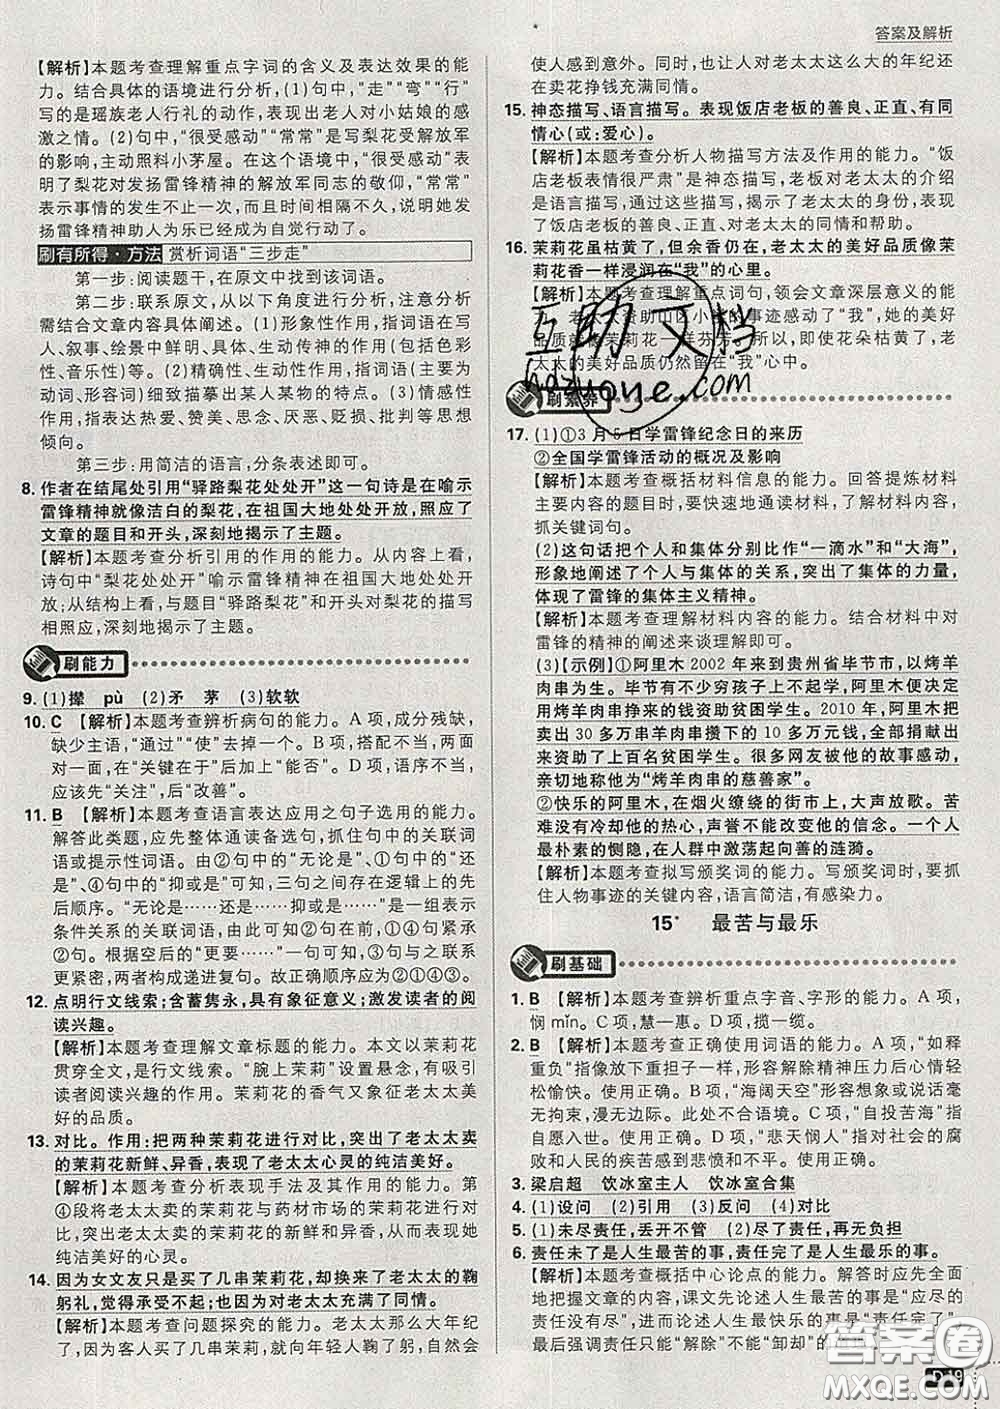 答案及解析
【解析】本题考查理解重点字词的含义及表达效果的能
力。结合具体的语境进行分析,(1)句中,“走”“弯”“行”
写的是瑶族老人行礼的动作,表现出老人对小姑娘的感
激之情。(2)句中,“很受感动”“常常”是写梨花受解放军
的影响,主动照料小茅屋。在这个语境中,“很受感动”表
明了梨花对发扬雷锋精神的解放军同志的敬仰,“常常”
表示事情的发生不止一次,而且时间相隔不久,说明她发
扬雷锋精神助人为乐已经成为自觉行动。
刷有所得·方法 赏析词语“三步走”
第一步:阅读题干,在原文中找到该词语。
第二步:联系原文,从以下角度进行分析,注意分析时
需结合文章内容具体阐述。(1)形象性作用,指词语在写
人、叙事、绘景中鲜明、具体、生动传神的作用(包括色彩
性、音乐性)等。(2)精确性、生动性作用,指词语(主要为
动词、形容词)细致描摹出某人某物的特点。(3)情感性
作用,指表达热爱、赞美、思念、厌恶、贬损、批判等思想
倾向。
第三步:用简洁的语言,分条表述即可。
8. 作者在结尾处引用“驿路梨花处处开”这一句诗是在喻示
雷锋精神就像洁白的梨花,在祖国大地处处开放,照应了
文章的题目和开头,深刻地揭示了主题。
【解析】本题考查分析引用的作用的能力。从内容上看,
诗句中“梨花处处开”喻示雷锋精神在祖国大地处处开
放;从结构上看,与题目“驿路梨花”和开头对梨花的描写
相照应,深刻地揭示了主题。
刷能力
9. (1)撵 pù (2)矛 茅 (3)软软
10. C 【解析】本题考查辨析病句的能力。A项,成分残缺,
缺少主语,“通过”“使”去掉一个。B项,搭配不当,两面
对一面,在“关键在于”后加上“能否”。D项,语序不当,
应该先“关注”,后“改善”。
11. B 【解析】本题考查语言表达应用之句子选用的能力。
解答此类题,应先整体通读备选句,抓住句中的关联词
语或提示性词语。由②句中的“无论是”、①句中的“还
是”、④句中的“抑或是”可知,三句之间存在逻辑上的先
后顺序。“无论是……还是……抑或是……”是一组表示
条件关系的关联词语,由此可知②①④句应紧承出现。
根据空后的“更要……”一句可知,此空前应为“既要……”
即③句,两者构成递进复句。故此题正确顺序应为②①
④③。
12. 点明行文线索;含蓄隽永,具有象征意义;激发读者的阅
读兴趣。
【解析】本题考查理解文章标题的能力。本文以茉莉花
贯穿全文,是行文线索。“腕上茉莉”设置悬念,有吸引
读者阅读兴趣的作用。茉莉花的香气又象征老太太美
好的品质。
13. 对比。作用:把两种茉莉花进行对比,突出了老太太卖
的茉莉花新鲜、异香,表现了老太太心灵的纯洁美好。
【解析】本题考查分析表现手法及其作用的能力。第
④段将老太太卖的茉莉花与药材市场的茉莉花进行对
比,突出老太太卖的茉莉花的新鲜和异香,从而表现她
纯洁美好的心灵。
14. 因为女文友只是买了几串茉莉花,却换来了老太太的鞠
躬礼,觉得承受不起;也因为对老太太充满了同情。
【解析】本题考查问题探究的能力。老太太那么大年纪
了,因为客人买了几串茉莉,就向年轻人鞠了躬,自然会
使人感到意外。同时,也让人对老太太这么大的年纪还
在卖花挣钱充满同情。
15. 神态描写、语言描写。表现饭店老板的善良、正直、有同
情心(或:爱心)。
【解析】本题考查分析人物描写方法及作用的能力。“饭
店老板表情很严肃”是神态描写,老板对老太太的介绍
是语言描写,通过这些描写,揭示了老太太的身份,表现
了饭店老板的善良、正直,对老太太的同情和帮助。
16. 茉莉花虽枯黄了,但余香仍在,老太太的美好品质像茉
莉花香一样浸润在“我”的心里。
【解析】本题考查理解重点词句,领会文章深层意义的能
力。老太太资助山区小孩的事迹感动了“我”,她的美好
品质就像茉莉花一样芬芳。所以,即使花朵枯黄了,老
太太的美好品质仍然留在“我”心中。
刷素养
17. (1)①3月5日学雷锋纪念日的来历
②全国学雷锋活动的概况及影响
【解析】本题考查概括材料信息的能力。回答提炼材料
主要内容的题目时,要快速地通读材料,了解材料内容,
抓关键词句。
(2)这句话把个人和集体分别比作“一滴水”和“大海”,
形象地阐述了个人与集体的关系,突出了集体的力量,
体现了雷锋的集体主义精神。
【解析】本题考查理解材料内容的能力。结合材料中对
雷锋的精神的阐述来谈理解即可。
(3)【示例】①阿里木2002年来到贵州省毕节市,以烤羊
肉串为生。毕节有不少穷孩子上不起学,阿里木便决定
用烤羊肉串挣来的钱资助贫困学生。2010年,阿里木把
卖出30多万串羊肉串攒下的10多万元钱,全部捐献出
来资助了上百名贫困学生。很多网友被他的故事感动,
亲切地称他为“烤羊肉串的慈善家”。
②快乐的阿里木,在烟火缭绕的街市上,大声放歌。苦
难没有冷却他的热心,声誉不能改变他的信念。一个人
最朴素的恻隐,在人群中激荡起向善的涟漪。
【解析】本题考查拟写颁奖词的能力。写颁奖词时,要抓
住人物事迹的关键内容,语言简洁,有感染力。
15* 最苦与最乐
刷基础
1. B 【解析】本题考查辨析重点字音、字形的能力。A项,
悯mǐn。C项,慧—惠。D项,揽—缆。
2. B 【解析】本题考查正确使用词语的能力。A项,“如释
重负”像放下重担子一样,形容解除精神压力后心情轻
松愉快。使用正确。B项,“海阔天空”形容想象或说话毫
无拘束,漫无边际。此处不合语境。C项,“自投苦海”指
自愿进入困苦的处境。使用正确。D项,“悲天悯人”指对社会的腐
败和人民的疾苦感到悲愤和不平。使用正确。
3. 梁启超 饮冰室主人 饮冰室合集
4. (1)设问 (2)引用 (3)反问 (4)对比
5. (1)未尽责任,丢开不管 (2)尽了责任,再无负担
6. 责任未了是人生最苦的事,责任完了是人生最乐的事。
【解析】本题考查概括中心论点的能力。解答时应先全面
地把握文章的内容,课文先论述人生最大的苦是“应尽的
责任没有尽”,进而论述人生最快乐的事是“责任完了”,
最后强调责任只能“解除”不能“卸却”的
互助文档
hozuoye.com
答案圈
MXQE.COM
D19